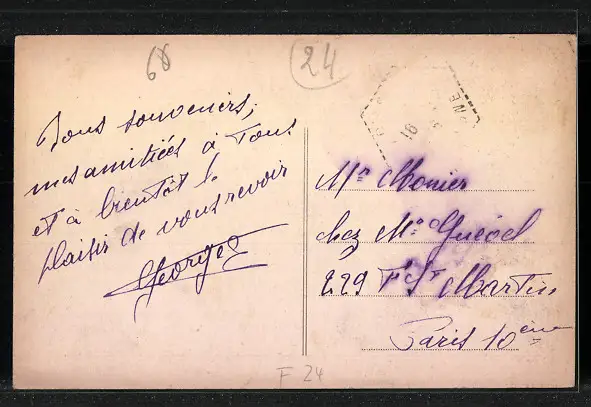 68
24
Bons souvenirs,
mes amitiées à Tous
et à bientôt le
plaisir de vous revoir
Georges
Mr Monier
chez Mr
229 F St Martin
Paris 10ème
F 24